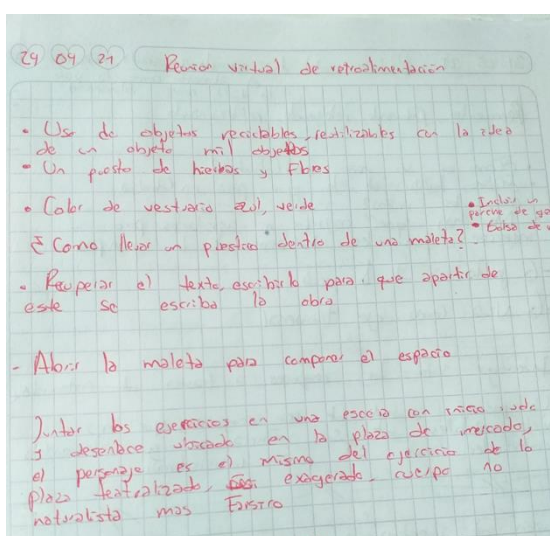 24 04 21 Reunion virtual de retroalimentación
• Uso de objetos reciclables, reutilizables con la idea
de un objeto mil objetos
• Un puesto de hierbas y Flores
• Color de vestuario azul, verde
• Incluir un
parche de
• Bolsa de
¿ Como llevar un puesto dentro de una maleta?
• Recuperar el texto, escribirlo para que apartir de
este se escriba la obra
- Abrir la maleta para componer el espacio
Juntar los ejercicios en una escena con inicio, nudo
y desenlace ubicado en la plaza de mercado,
el personaje es el mismo del ejercicio de la
plaza teatralizado, exagerado, cuerpo no
naturalista mas